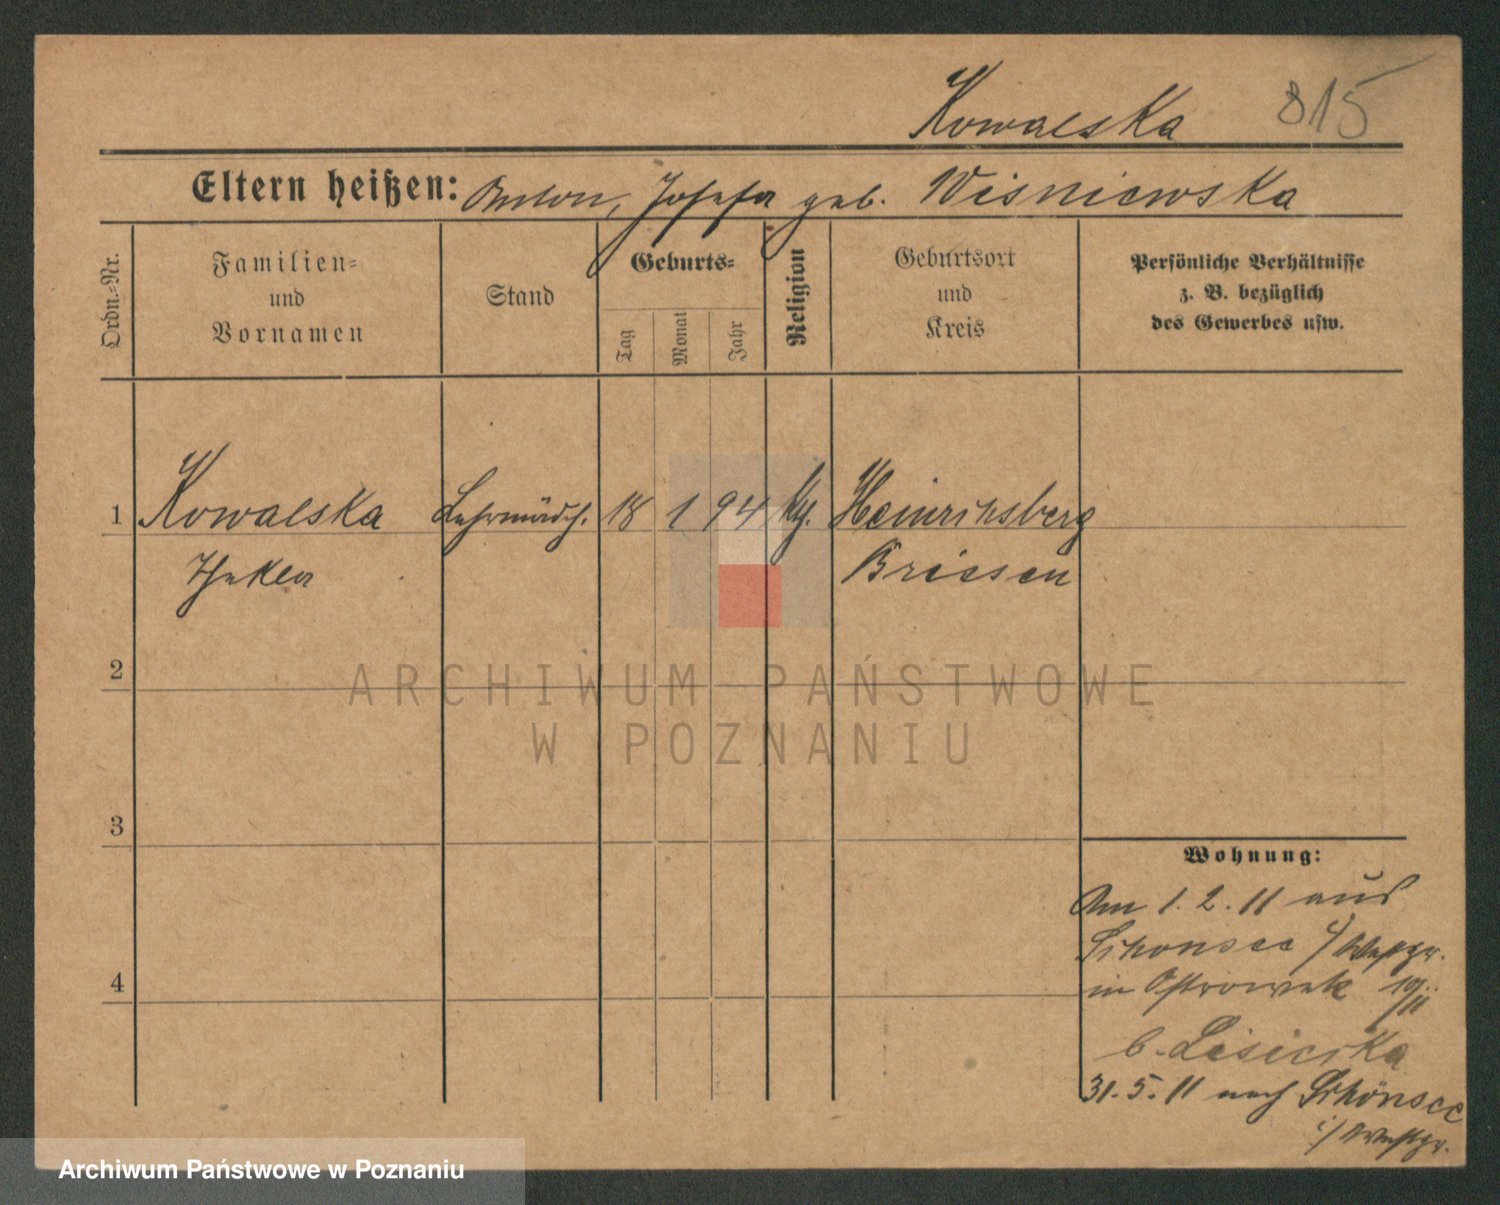 Kowalska 815
Eltern heißen: Anton, Josefa geb. Wisniewska
Ordn.-Nr.
Familien-
und
Vornamen
Stand
Geburts-
Tag
Monat
Jahr
Religion
Geburtsort
und
Kreis
Persönliche Verhältnisse
z. B. bezüglich
des Gewerbes usw.
1 Kowalska Lehrmädch. 18 1 94 kth. Heinrichsberg
Thekla Briesen
2
ARCHIWUM PAŃSTWOWE
W POZNANIU
3
Wohnung:
Am 1. 2. 11 aus
Schönsee i/ Westpr.
4
in Ostrowek
b. Lisiecka
31. 5. 11 nach Schönsee
i/ Westpr.
Archiwum Państwowe w Poznaniu